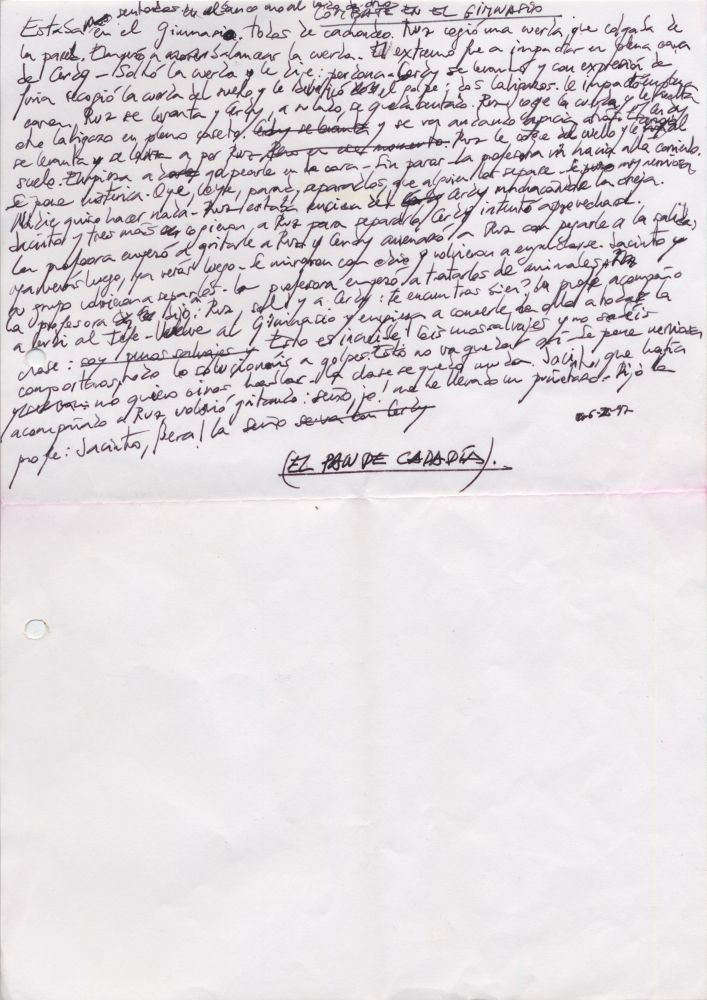 sentados en el banco uno al lado de otro
COMBATE EN EL GIMNASIO
Estaban en el Gimnasio. todos de cachondeo. Ruz cogió una cuerda que colgaba de
la pared. Empezó a balancear la cuerda. El extremo fue a impactar en plena cara
del Cerdy - Soltó la cuerda y le dice: perdona - Cerdy se levantó y con expresión de
furia recogió la cuerda del suelo y le el golpe; dos latigazos. le impactó en plena
cara. Ruz se levanta y Cerdy, a su lazo, se queda sentado. Ruz coge la cuerda y le suelta
otro latigazo en pleno careto. Cerdy se levanta y se van El Cerdy
se levanta y se lanza a por Ruz. Pero en ese momento Ruz le coge del cuello y le al
suelo. Empieza a golpearle en la cara - Sin parar. La profesora va hacia allá corriendo.
Se pone histérica. Oye, oye, parad, separadlos, que alguien los separe - Se puso muy nerviosa
Nadie quiso hacer nada - Ruz estaba encima del Cerdy machacándole la oreja.
Jacinto y tres más cogieron a Ruz para separarlo, Cerdy intentó aprovecharse.
La profesora empezó a gritarle a Ruz y Cerdy amenazó a Ruz con pegarle a la salida,
ya verás luego, ya verás luego - Se miraron con odio y volvieron a enzarzarse. Jacinto y
su grupo volvieron a separarlos - la profesora empezó a tratarlos de animales a Ruz
La profesora le dijo: Ruz, sal y a Cerdy: te encuentras bien? la profe acompañó
a Cerdy al Jefe - Vuelve al Gimnasio y empieza a comerle la a toda la
clase: soy unos salvajes y Esto es increíble, sois unos salvajes y no sabéis
comportaros, todo lo solucionáis a golpes. Esto no va a quedar así - Se pone nerviosa
no quiero oíros hablar - la clase se quedó muda. Jacinto, que había
acompañado a Ruz volvió gritando: seño, je! me he llevado un puñetazo - Dijo la
profe: Jacinto, fuera! la seño se va con Cerdy
(EL PAN DE CADA DÍA).